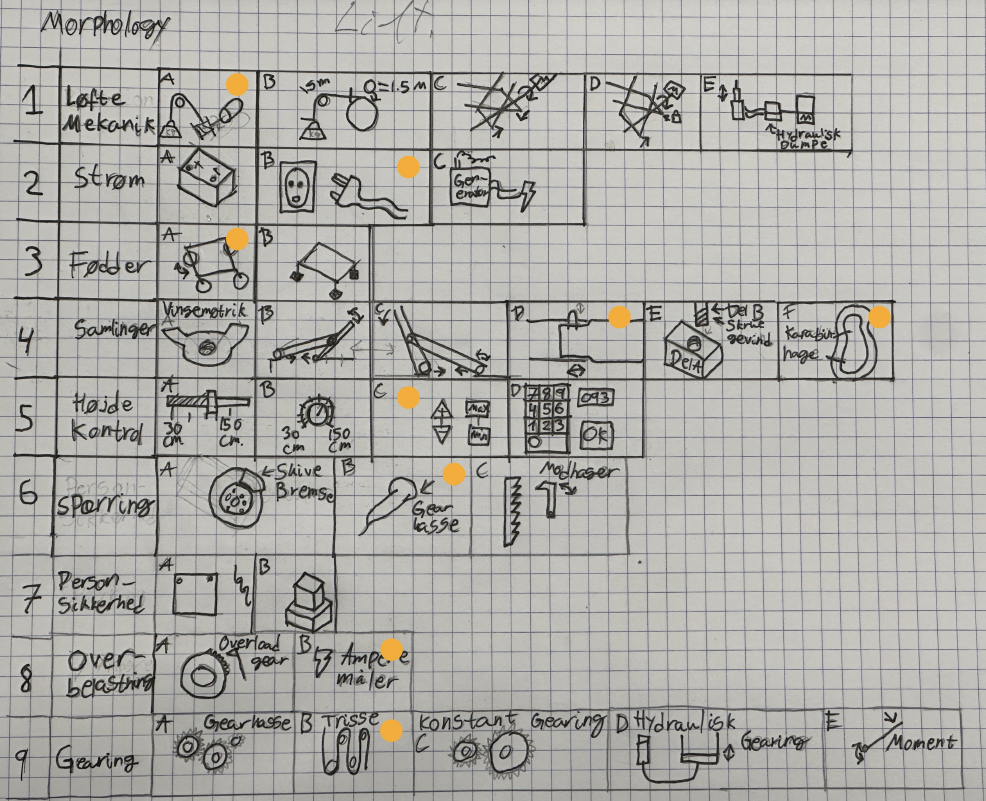 Morphology
Lift.
1 Løfte Mekanik A B .5m O=1.5 M C D E Hydraulisk Pumpe
2 Strøm A B C Generator
3 Fødder A B
4 Samlinger A Vingemøtrik B C D E Del B Skrue gevind Del A F Karabin hage
5 Højde Kontrol A 30 cm 150 cm. B 30 cm 150 cm C max min D 7 8 9 4 5 6 1 2 3 0 093 OK
6 Spærring A Skive Bremse B Gear kasse C Modhager
7 Person- Sikkerhed A B
8 Over- belastning A Overload gear B Ampere måler
9 Gearing A Gearkasse B Trisse C Konstant Gearing D Hydraulisk Gearing E Moment